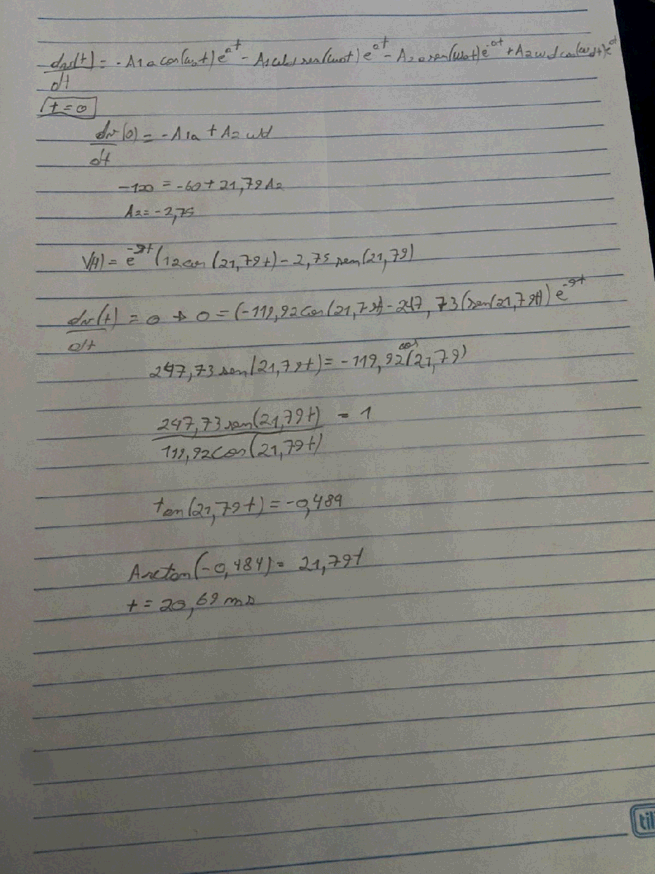 dv(t)/dt = -A1a cos(wdt)e^at - A1wd sen(wdt)e^at - A2a sen(wdt)e^-at + A2wd cos(wdt)e^a
t=0
dv(0)/dt = -A1a + A2 wd
-120 = -60 + 21,79 A2
A2 = -2,75
V(t) = e^-5t (12cos(21,79t) - 2,75 sen(21,79)
dv(t)/dt = 0 → 0 = (-119,92cos(21,79t) - 247,73(sen(21,79t)) e^-5t
247,73 sen(21,79t) = -119,92 cos(21,79)
247,73 sen(21,79t) / 119,92 cos(21,79t) = 1
tan(21,79t) = -0,489
Arctan(-0,484) = 21,79t
t = 20,69 ms
til